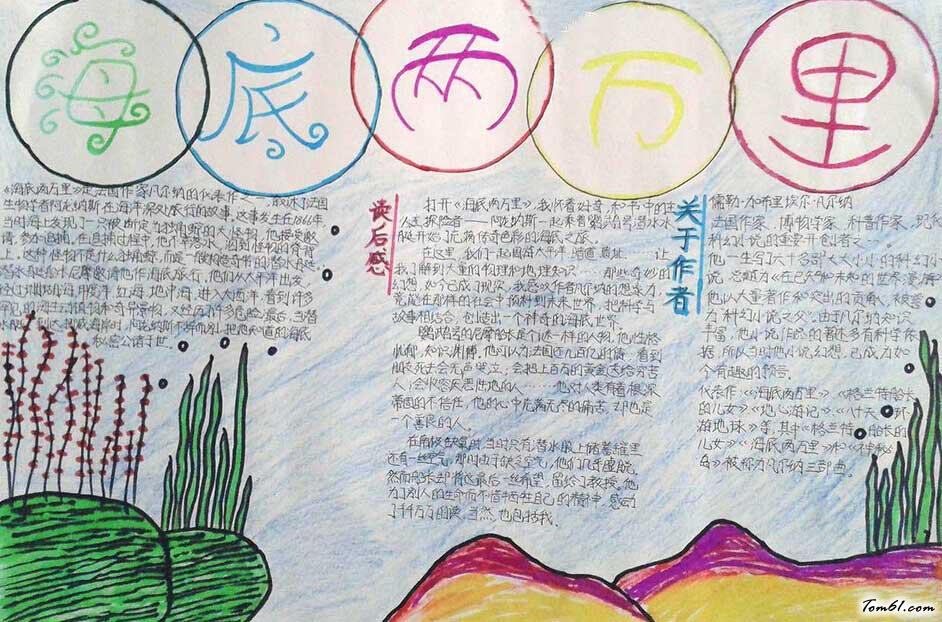 海底两万里
《海底两万里》是法国作家凡尔纳的代表作之一,叙述了法国
生物学者阿龙纳斯在海洋深处旅行的故事。这事发生在1866年
当时海上发现了一只被断定为独角鲸的大怪物,他接受邀
请,参加追捕,在追捕过程中,他不幸落水,泅到怪物的脊背
上,这种怪物不是什么独角鲸,而是一艘构造奇节的潜水船
潜水船船长尼摩邀请他作海底旅行,他们从太平洋出发,
经过 红海,地中海,进入大西洋,看到许多
罕见的海生动植物和奇异景物,又经历许多危险,最后,当潜
把他知道的海底
秘密公诸于世。
读后感
打开《海底两万里》,我怀着好奇,和书中的主
人公,探险者——阿龙纳斯一起乘着鹦鹉号潜水
艇开始了充满传奇色彩的海底之旅。
在这里,我们一起周游太平洋
我了解到大量的物理和地理知识……那些奇妙的
幻想,如今已成了现实,我感叹作者凡尔纳的想象力,
竟能在那样的社会中预料到未来世界,把科学与
故事相结合,创造出一个神奇的海底世界。
鹦鹉号的尼摩船长是个谜一样的人物,他性格
忧郁,知识渊博,他可以为法国还几百亿的债,看到
朋友死去会无声哭泣,会把上百万的黄金送给穷苦
人,会收容厌恶陆地的………他对人类有着根深
蒂固的不信任,他的心中充满无尽的痛苦,却也是
一个善良的人。
在南极缺氧时,当时只有潜水服上储蓄罐里
还有一丝空气,那时由于缺乏空气,他们几乎虚脱,
然而船长却将这最后一丝希望,留给了教授。他
为了别人的生命而不惜牺牲自己的精神,感动
了千千万万的读,当然,也包括我。
关于作者
儒勒·加布里埃尔·凡尔纳
法国作家,博物学家,科普作家,现代
科幻小说的重要开创者之一。
他一生写六十多部大大小小的科幻小
说,总题为《在已知和未知的世界漫游》
他以大量著作和突出的贡献,被誉
为"科幻小说之父"。由于凡尔纳知识
丰富,他小说作品的著述多有科学依
据,所以当时他小说幻想,已成为如
今有趣的预言。
代表作:《海底两万里》《格兰特船长
的儿女》《地心游记》《八十天环
游地球》等,其中《格兰特船长的
儿女》《海底两万里》和《神秘
岛》被称为凡尔纳三部曲。
Tom61.com